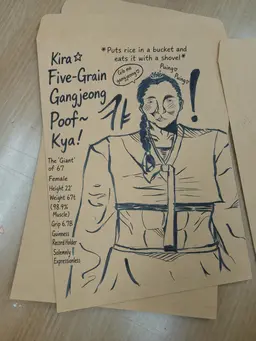 *Puts rice in a bucket and
eats it with a shovel*
Kira☆
Five-Grain
Gangjeong
Poof~
Kya!
Pwing☆
Pwing☆
갸!
The 'Giant'
of 67
Female
Height 22'
Weight 67t
(98.9%
Muscle)
Grip 6.7B
Guinness
Record Holder
Solemnly
Expressionless